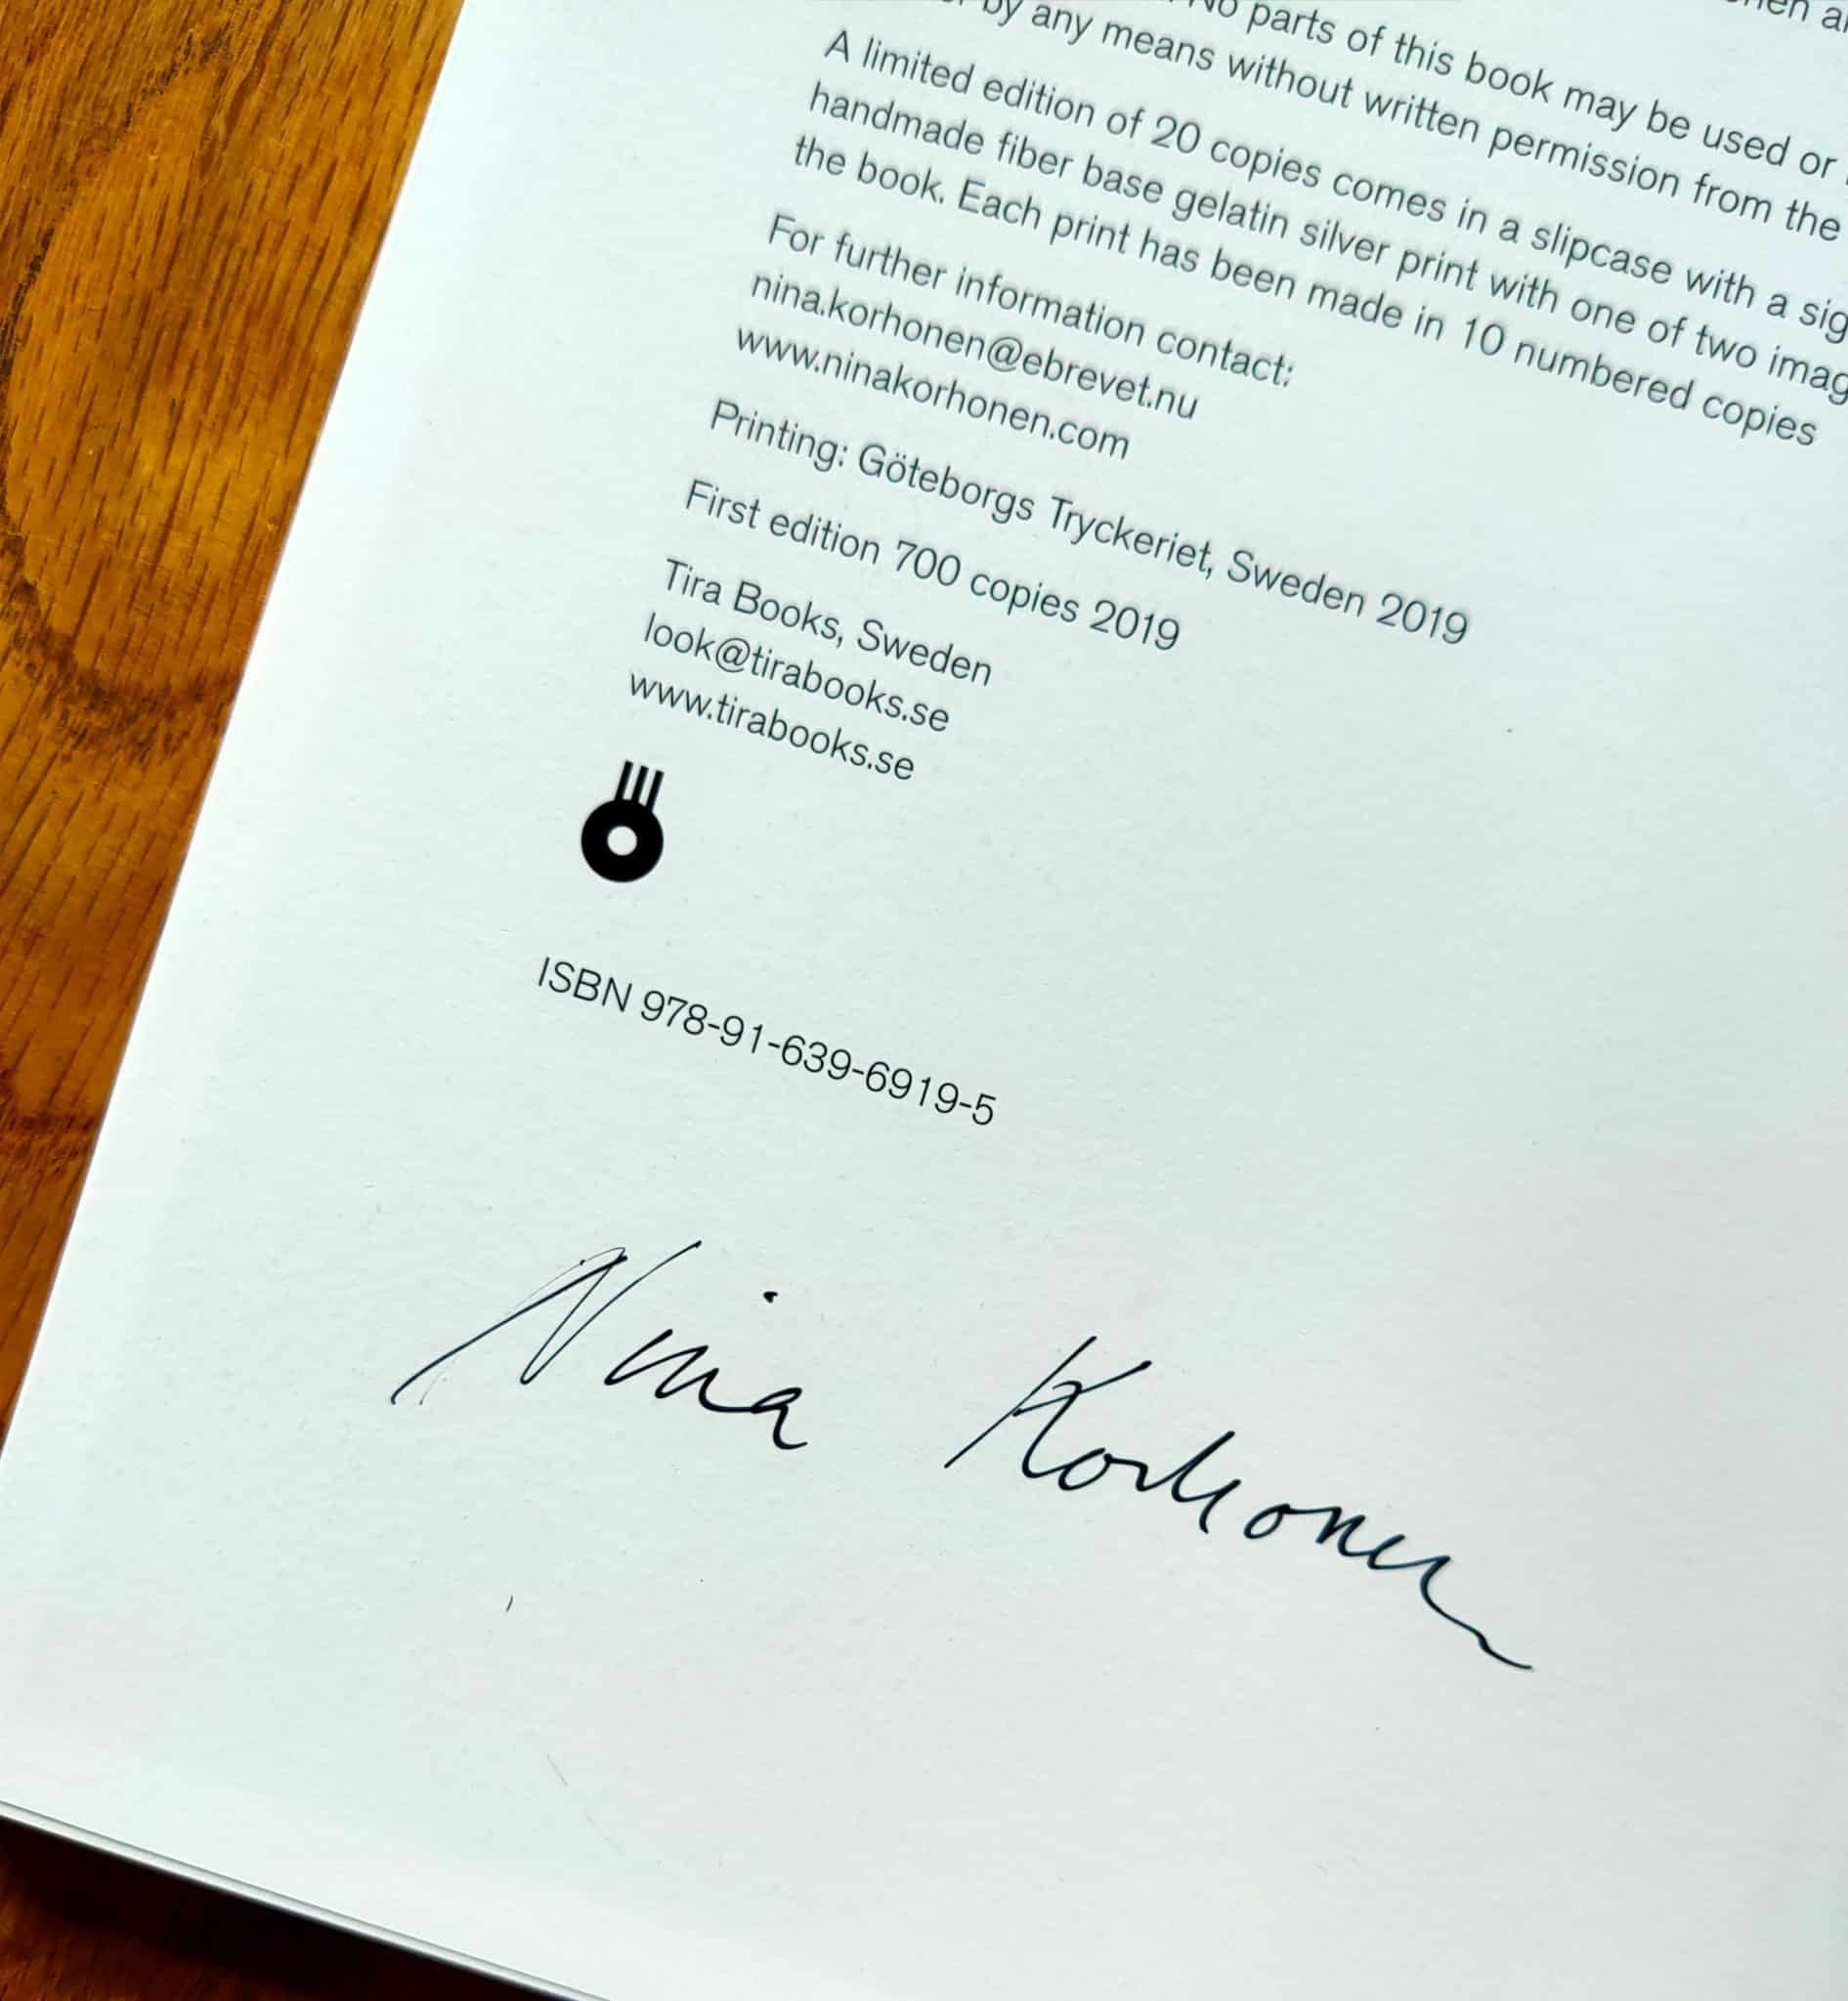 No parts of this book may be used or
by any means without written permission from the
A limited edition of 20 copies comes in a slipcase with a
handmade fiber base gelatin silver print with one of two
the book. Each print has been made in 10 numbered copies
For further information contact:
nina.korhonen@ebrevet.nu
www.ninakorhonen.com
Printing: Göteborgs Tryckeriet, Sweden 2019
First edition 700 copies 2019
Tira Books, Sweden
look@tirabooks.se
www.tirabooks.se
ISBN 978-91-639-6919-5
Nina Korhonen